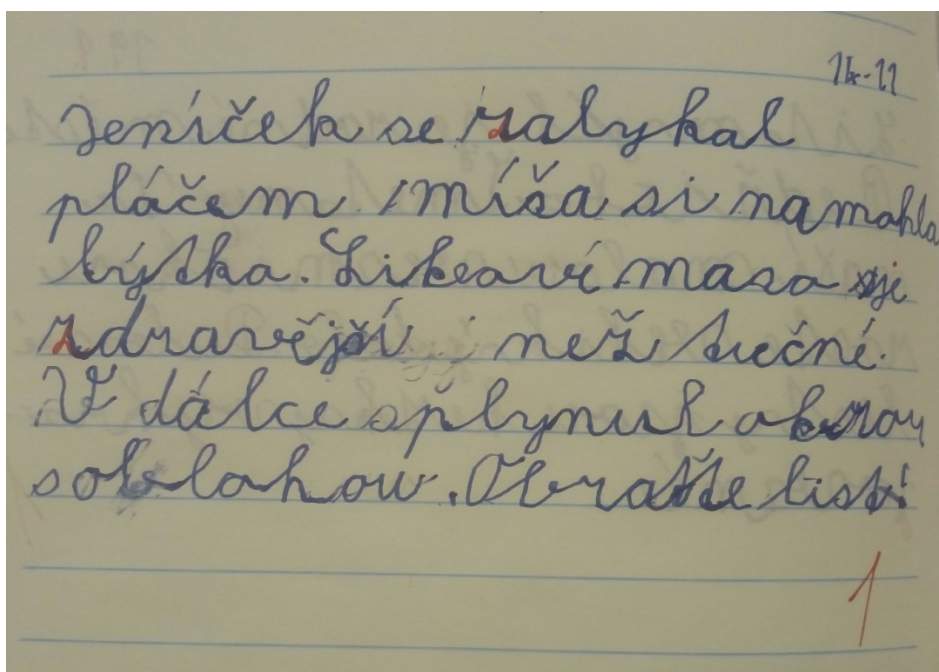 14.11
Jeníček se zalykal
pláčem. Míša si namohla
lýtka. Libové maso je
zdravější než tučné.
V dálce splynul obzor
s oblohou. Obraťte list!
1